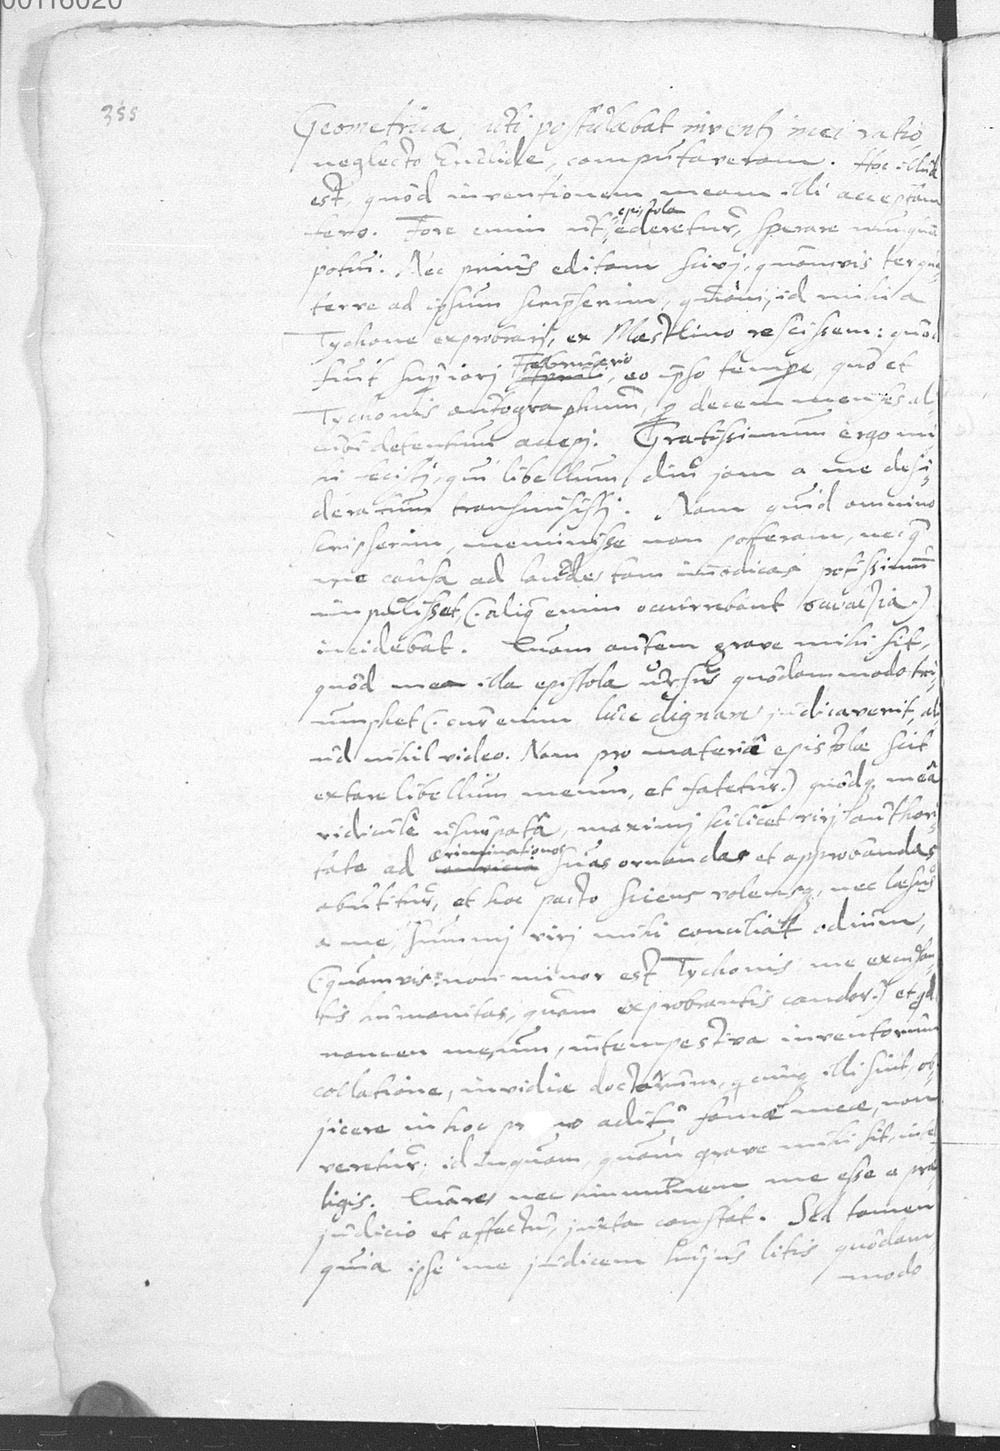 00116020
355
Geometrica, uti postulabat inventi mei ratio
neglecto Euclide, computaveram. Hoc illud
est, quòd inventionem meam illi acceptam
fero. Fore enim ut epistola ederetur, sperare nunquā
potui. Nec prius editam scivi, quamvis ter qua,
terve ad ipsum scripserim, quàm id mihi a
Tychone exprobrari, ex Mæstlino rescissem: quod
fuit superiori Februario, eo ipso tempe, quo et
Tychonis autographum, p decem menses al,
cubi detentum accepi. Gratissimum ergo mi
hi fecisti, qui libellum diu jam a me desi,
deratum transmisisti. Nam quid omnino
scripserim, meminisse non poteram, necq
me causa ad laudes tam immodicas potissimū
impulisset, (aliq enim occurrebant)
incidebat. Quam autem grave mihi sit,
quòd mea illa epistola Ursus quodammodo tri,
umphet (cur enim luce dignam judicaverit, ali,
ud nihil video. Nam pro materia epistolæ scit
extare libellum meum, et fatetur.) quodq meâ
ridiculè usurpatâ, maximi scilicet viri authori,
tate ad criminationes suas ornandas et approbandas
abutitur, et hoc pacto sciens volensq, nec læsus
a me, summi viri mihi conciliat odium,
(quamvis non minor est Tychonis me excusan,
tis humanitas, quam exprobrantis candor.) et qd
nomen meum, intempestiva inventorum
collatione, invidiæ doctorum, qcunq illi sint, ob,
jicere in hoc pr mo aditu famæ meæ, non
veretur: id inquam, quàm grave mihi sit, inte
ligis. Quare nec immunem me esse a præ
judicio et affectu, juxta constat. Sed tamen
quia ipse me judicem hujus litis quodam,
modo